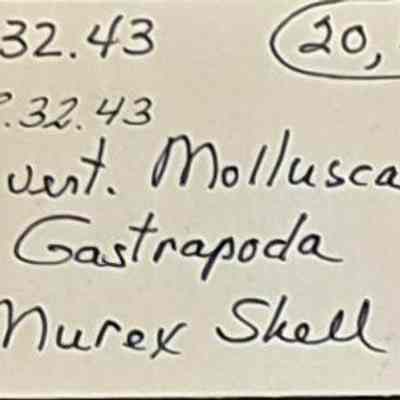 32.43 20,
.32.43
vert. Mollusca
Gastrapoda
Murex Shell